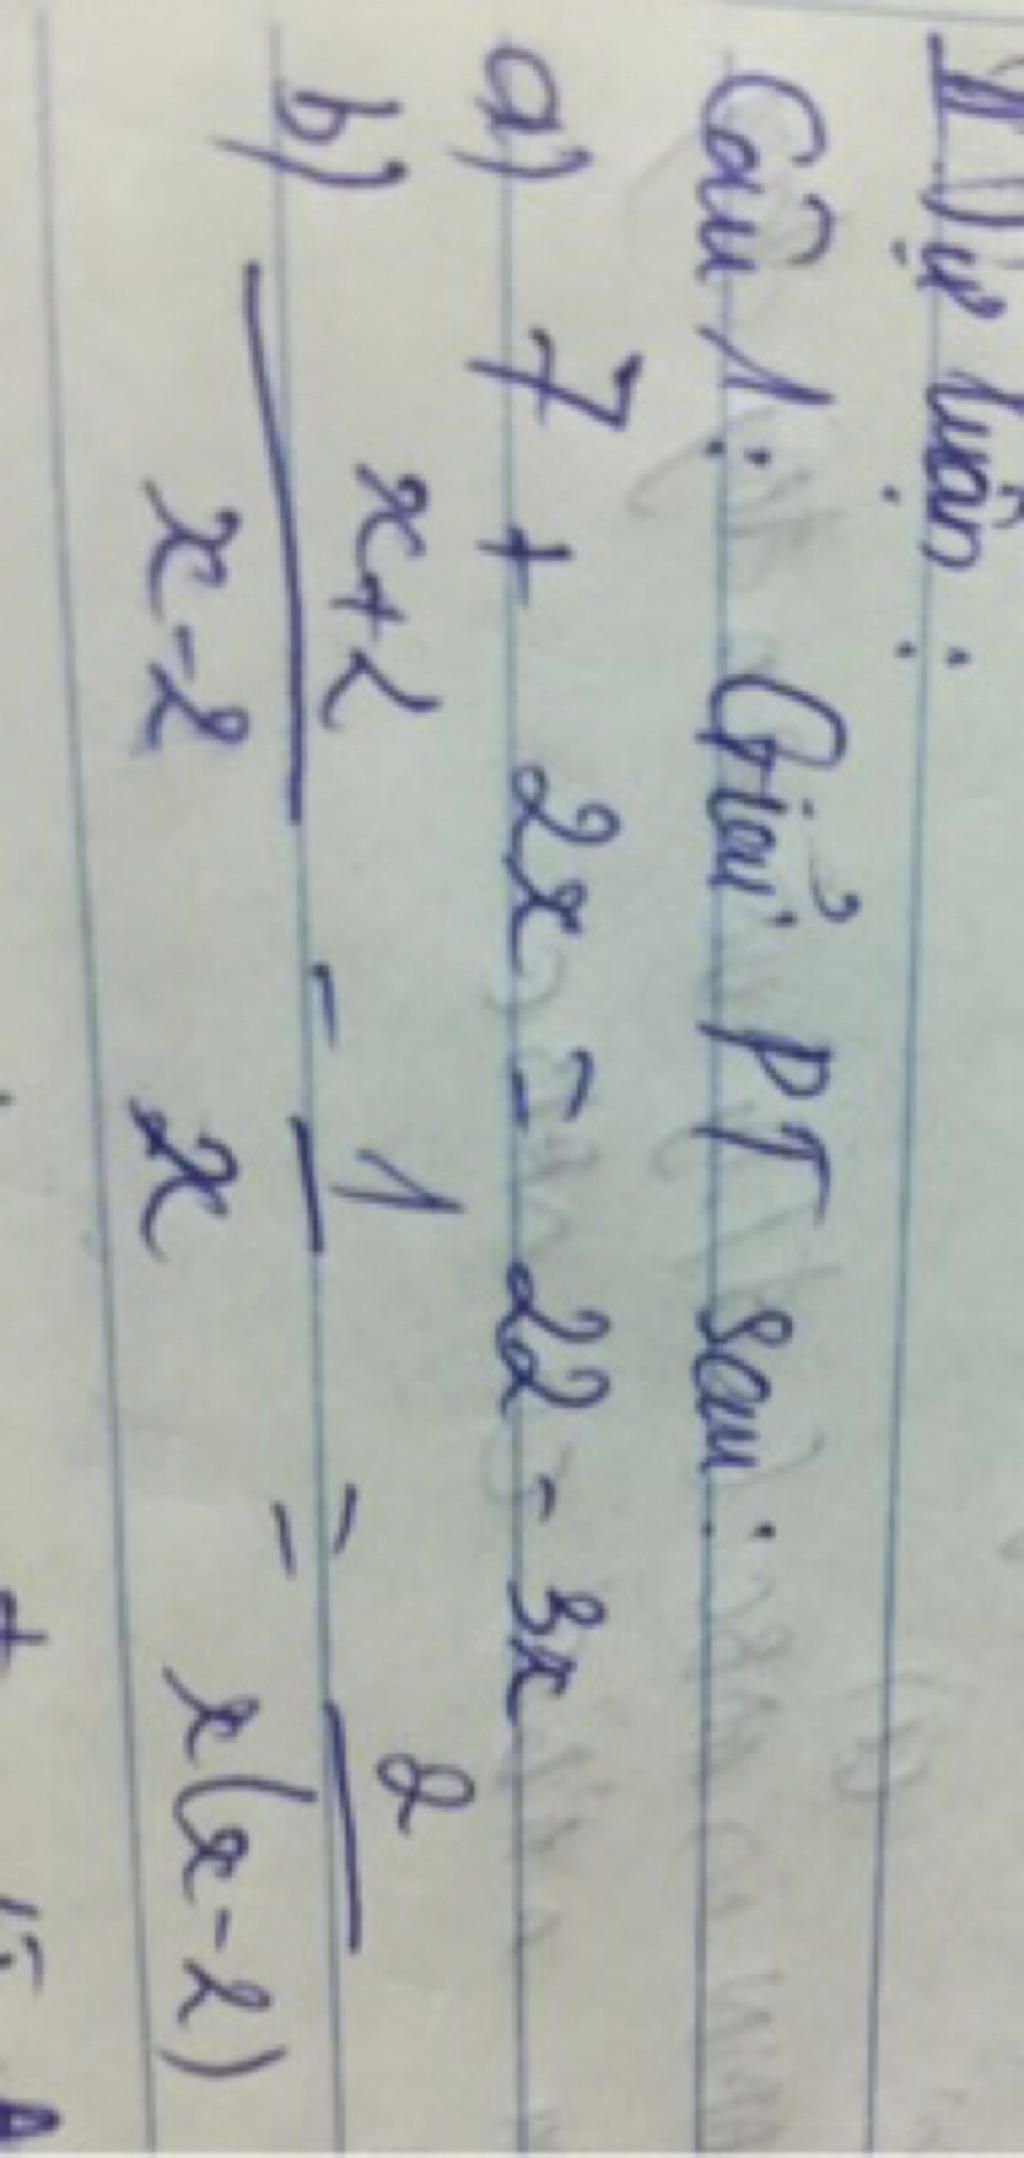 II Tự luận :
Câu 1 : Giải PT sau :
a) 7 + 2x = 22 - 3x
b) x+2 / x-2 - 1 / x = 2 / x(x-2)